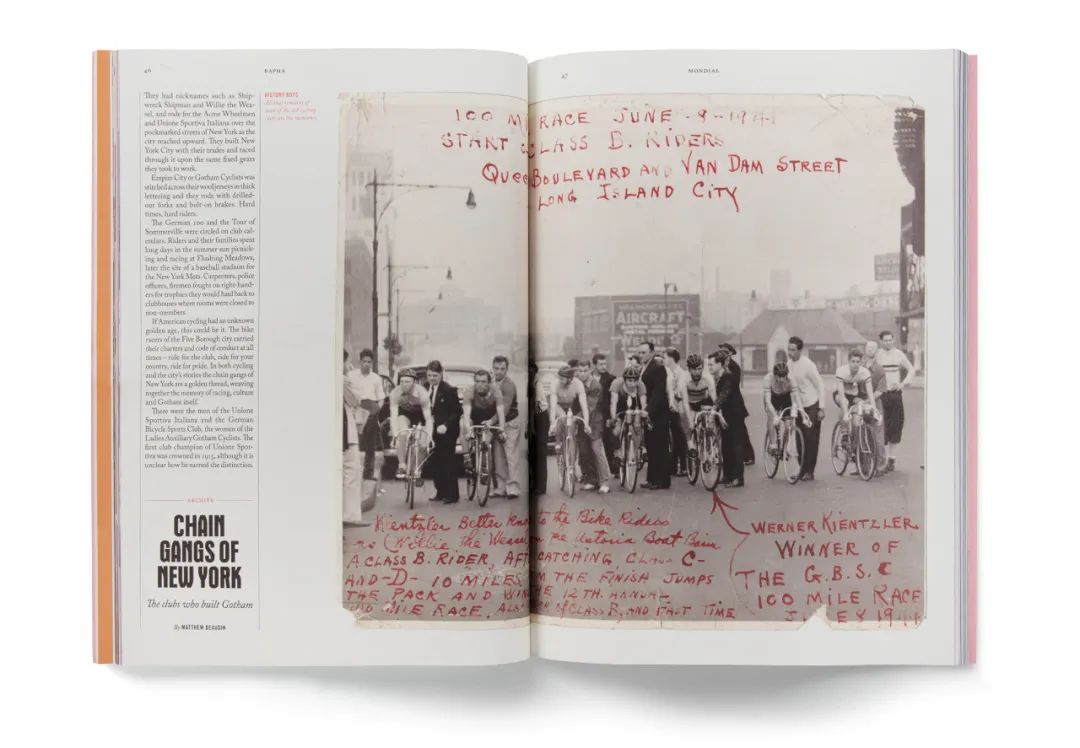 46
RAPHA
They had nicknames such as Ship-
wreck Shipman and Willie the Wea-
sel, and rode for the Acme Wheelmen
and Unione Sportiva Italiana over the
pockmarked streets of New York as the
city reached upward. They built New
York City with their trades and raced
through it upon the same fixed gears
they took to work.
Empire City or Gotham Cyclists was
stitched across their wool jerseys in thick
lettering and they rode with drilled-
out forks and bolt-on brakes. Hard
times, hard riders.
The German 100 and the Tour of
Somerville were circled on club cal-
endars. Riders and their families spent
long days in the summer sun picnick-
ing and racing at Flushing Meadows,
later the site of a baseball stadium for
the New York Mets. Carpenters, police
officers, firemen fought on right-hand-
ers for trophies they would haul back to
clubhouses where rooms were closed to
non-members.
If American cycling had an unknown
golden age, this could be it. The bike
racers of the Five Borough city carried
their charters and code of conduct at all
times – ride for the club, ride for your
country, ride for pride. In both cycling
and the city's stories the chain gangs of
New York are a golden thread, weaving
together the memory of racing, culture
and Gotham itself.
There were the men of the Unione
Sportiva Italiana and the German
Bicycle Sports Club, the women of the
Ladies Auxiliary Gotham Cyclists. The
first club champion of Unione Spor-
tiva was crowned in 1915, although it is
unclear how he earned the distinction.
HISTORY BOYS
ARCHIVE
CHAIN
GANGS OF
NEW YORK
The clubs who built Gotham
By MATTHEW BEAUDIN
47
MONDIAL
100 M RACE JUNE-8-1941
START CLASS B. RIDERS
QUEE BOULEVARD AND VAN DAM STREET
LONG ISLAND CITY
AIRCRAFT
WELDING
Kientzler Better Know to the Bike Riders
as Willie the Weasel on the Astoria Boat Basin
A CLASS B. RIDER, AFT CATCHING, CLASS C-
AND-D- 10 MILES M THE FINISH JUMPS
THE PACK AND WIN HE 12TH. ANNUAL
100 MILE RACE. ALSO OF CLASS B, AND FAST TIME
WERNER KIENTZLER
WINNER OF
THE G.B.S.C
100 MILE RACE
JUNE 8 1941